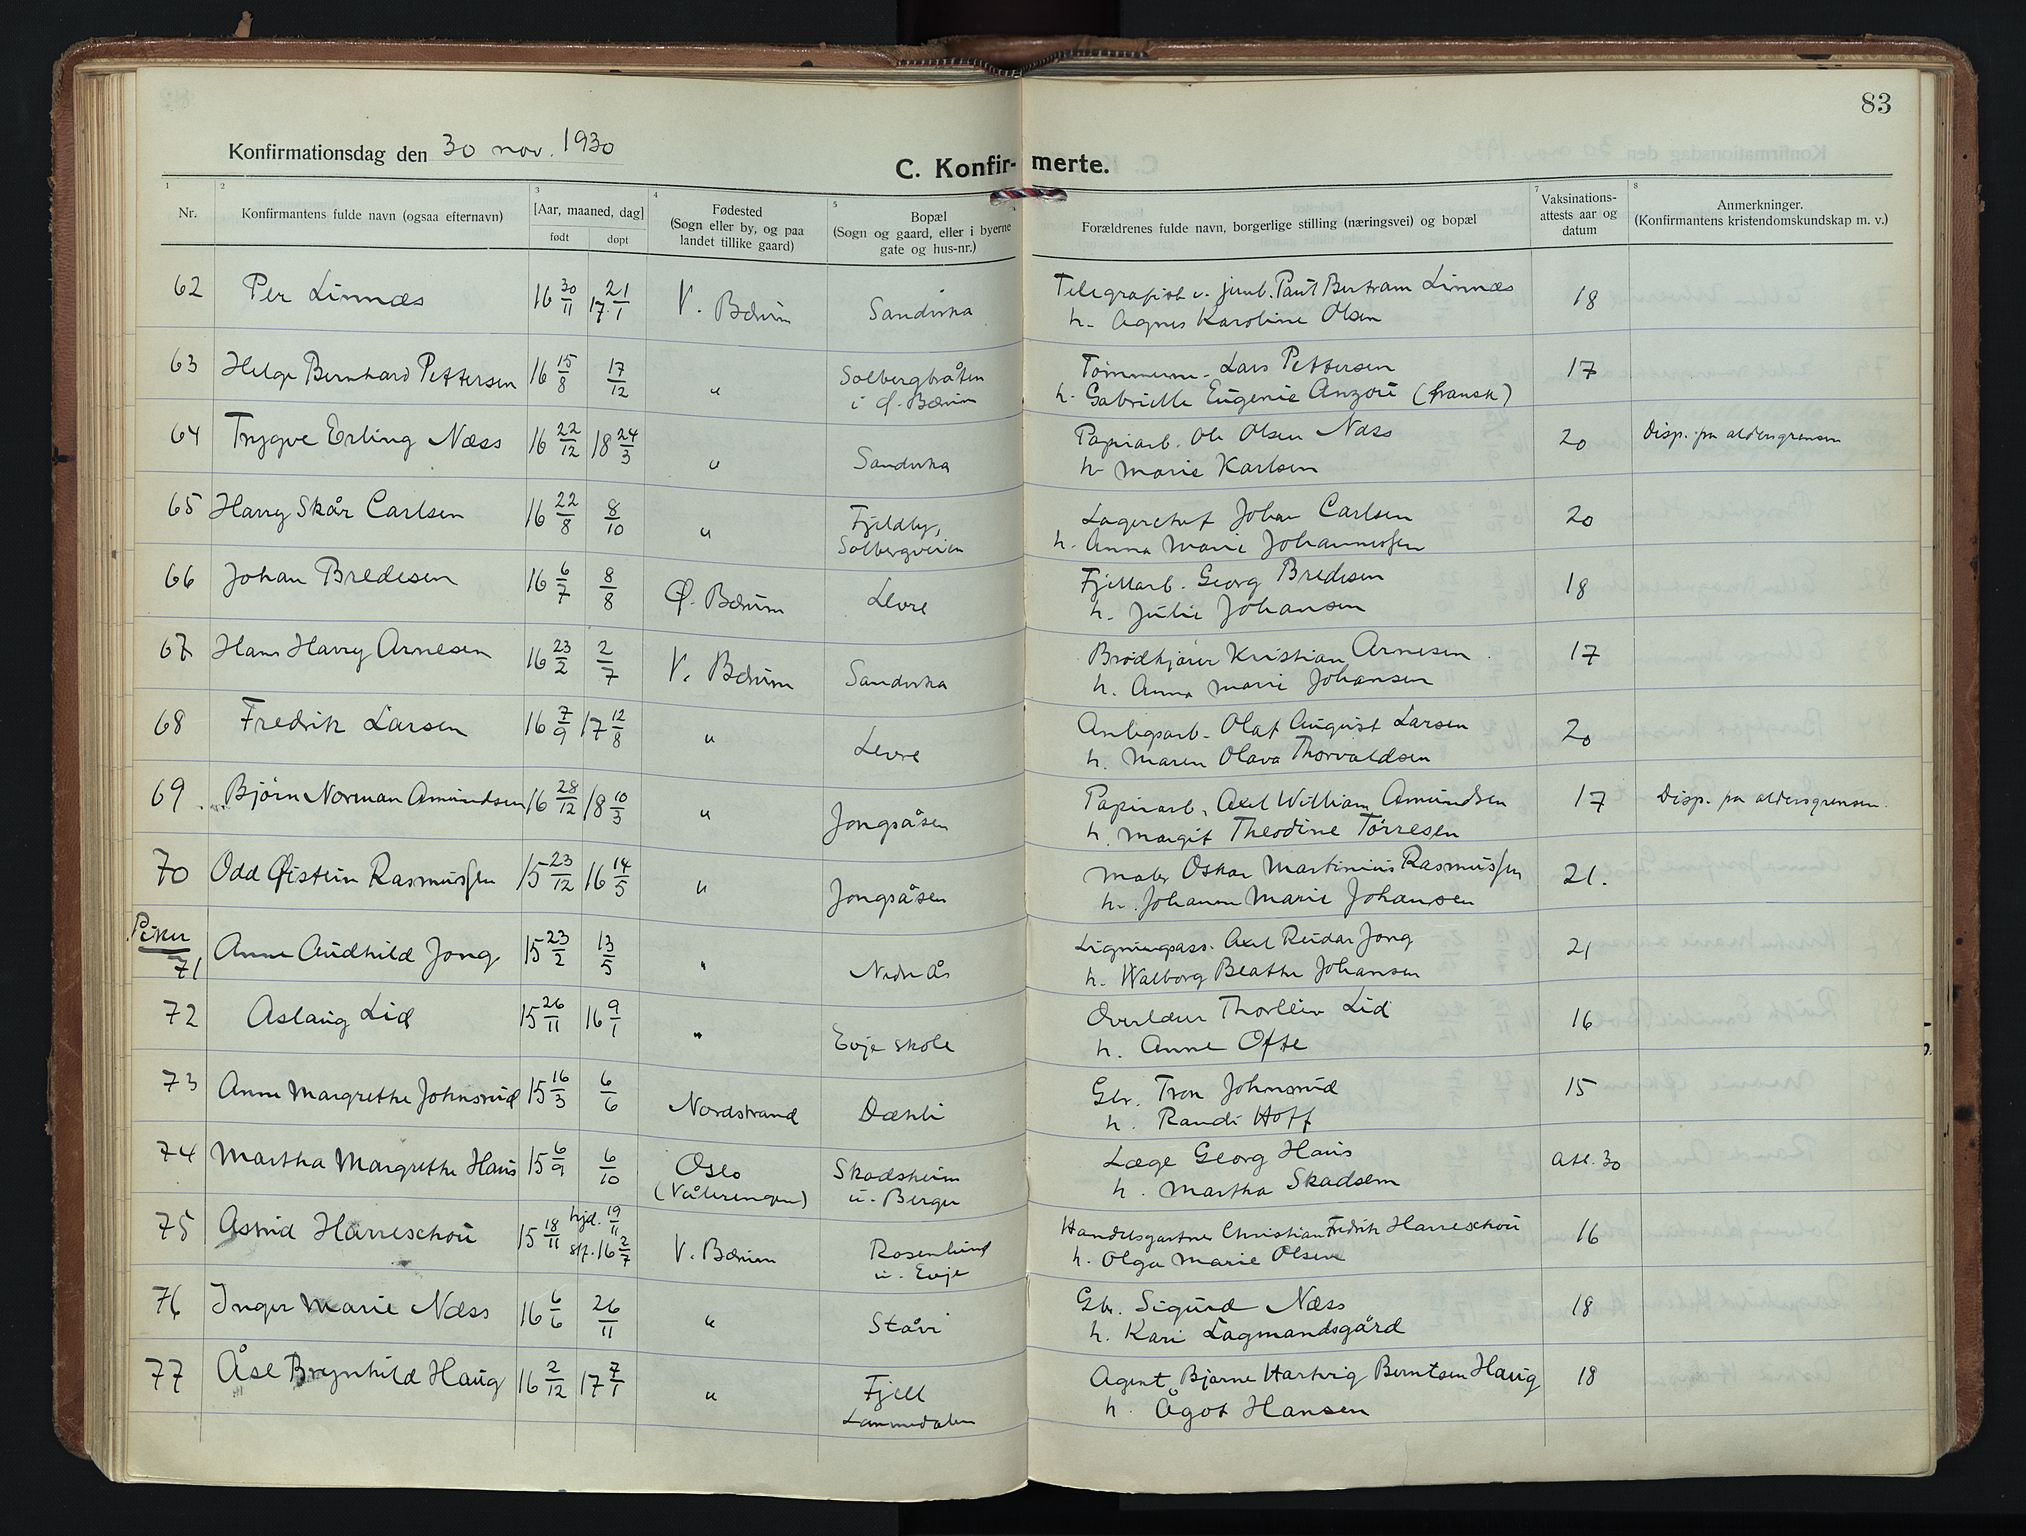 83
Konfirmationsdag den 30 nov. 1930
C. Konfir- merte.
1 2 3 4 5 7 8
Nr. Konfirmantens fulde navn (ogsaa efternavn) [Aar, maaned, dag] født døpt Fødested (Sogn eller by, og paa landet tillike gaard) Bopæl (Sogn og gaard, eller i byerne gate og hus-nr.) Forældrenes fulde navn, borgerlige stilling (næringsvei) og bopæl Vaksinations-attests aar og datum Anmerkninger. (Konfirmantens kristendomskundskap m. v.)
62 Per Linnæs 16 30/11 17 21/1 V. Bærum Sandvika Telegrafist v. jernb. Paul Bertram Linnæs 18
h. Agnes Karoline Olsen
63 Helge Bernhard Pettersen 16 15/8 17/12 " Solbergbråten Tømmerm. Lars Pettersen 17
i Ø. Bærum h. Gabrielle Eugenie Anzou (fransk)
64 Trygve Erling Næss 16 22/12 18 24/3 " Sandvika Papirarb. Ole Olsen Næss 20 Disp. fra aldersgrensen
h. Marie Karlsen
65 Harry Skår Carlsen 16 22/8 8/10 " Fjeldby, Lagerchef Johan Carlsen 20
Solbergveien h. Anna Marie Johannessen
66 Johan Bredesen 16 6/7 8/8 Ø. Bærum Levre Fjellarb. Georg Bredesen 18
h. Julie Johansen
67 Hans Harry Arnesen 16 23/2 2/7 V. Bærum Sandvika Brødkjører Kristian Arnesen 17
h. Anna Marie Johansen
68 Fredrik Larsen 16 7/9 17 12/8 " Levre Anlegsarb. Olaf August Larsen 20
h. Maren Olava Thorvaldsen
69 Bjørn Norman Amundsen 16 28/12 18 10/3 " Jongsåsen Papirarb. Axel William Amundsen 17 Disp. fra aldersgrensen.
h. Margit Theodine Tørresen
70 Odd Øistein Rasmussen 15 23/12 16 14/5 " Jongsåsen Maler Oskar Martinius Rasmussen 21.
h. Johanne Marie Johansen
Piker
71 Anne Audhild Jong 15 23/2 13/5 " Nedre Ås Ligningsass. Axel Reidar Jong 21
h. Walborg Beathe Johansen
72 Aslaug Lid 15 26/11 16 9/1 " Evje skole Overlærer Thorleiv Lid 16
h. Anne Ofte
73 Anne Margrethe Johnsrud 15 16/3 6/6 Nordstrand Dæhli Gbr. Tron Johnsrud 15
h. Randi Hoff
74 Martha Margrethe Haus 15 6/9 6/10 Oslo Skadsheim Læge Georg Haus att. 30
(Vålerengen) u. Berger h. Martha Skadsem
75 Astrid Harreschou 15 18/11 hjd. 19/11 V. Bærum Rosenlund Handelsgartner Christian Fredrik Harreschou 16
stf. 16 2/7 u. Evje h. Olga Marie Olsen
76 Inger Marie Næss 16 6/6 26/11 " Stavi Gbr. Sigurd Næss 18
h. Kari Lagmandsgård
77 Åse Brynhild Haug 16 2/12 17 7/1 " Fjell Agent Bjarne Hartvig Berntsen Haug 18
Lommedalen h. Ågot Hansen